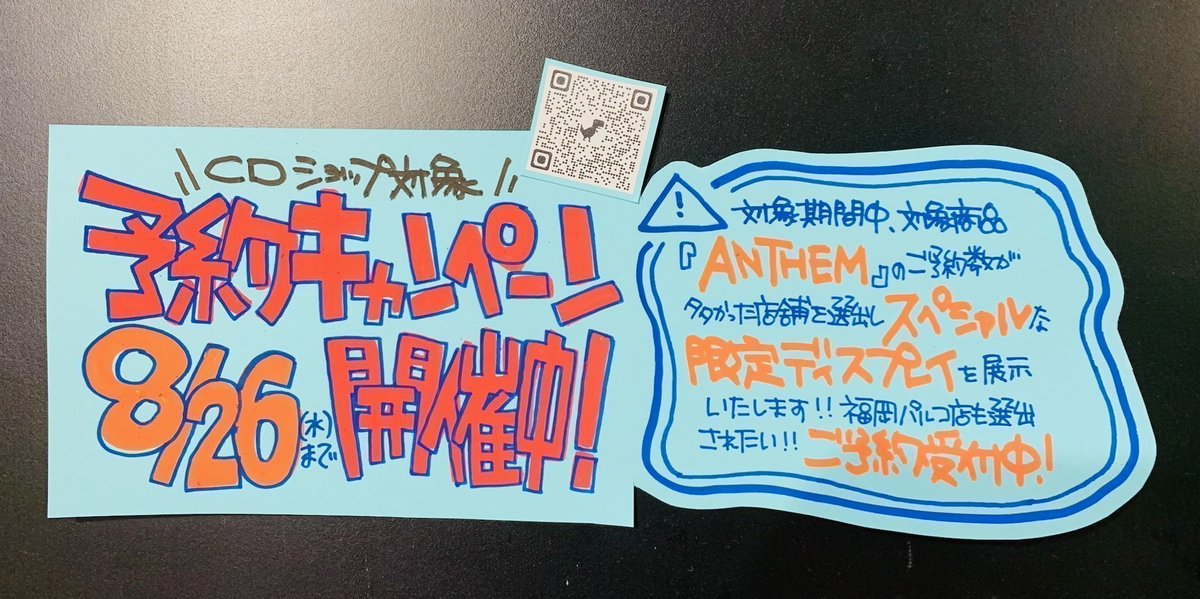 CDショップ対象
予約キャンペーン
8/26(水)まで開催中!
対象期間中、対象商品
『ANTHEM』のご予約数が
多かった店舗を選出しスペシャルな
限定ディスプレイを展示
いたします!!福岡パルコ店も選出
されたい!!ご予約受付中!